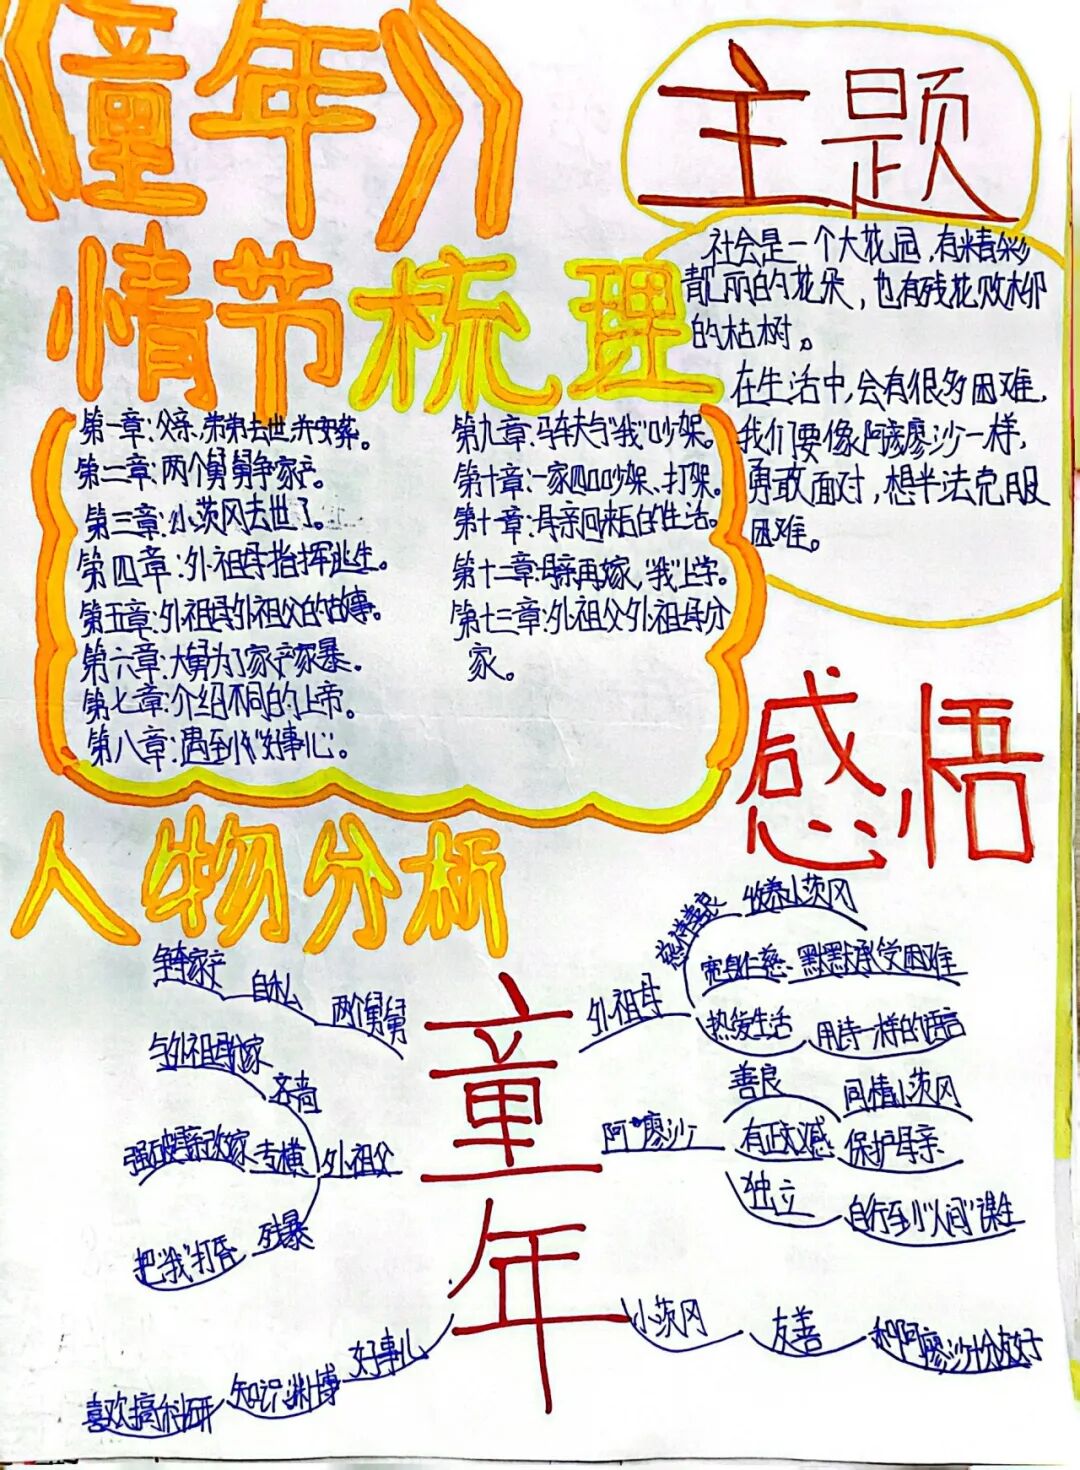 《童年》
情节梳理
第一章:父亲、弟弟去世,并安葬。
第二章:两个舅舅争家产。
第三章:小茨冈去世了。
第四章:外祖母指挥逃生。
第五章:外祖母外祖父的故事。
第六章:大舅为了家产家暴。
第七章:介绍不同的上帝。
第八章:遇到"好事儿"。
第九章:马车夫与"我"吵架。
第十章:一家四口吵架、打架。
第十一章:母亲回来后的生活。
第十二章:母亲再嫁,"我"上学。
第十三章:外祖父外祖母分
家。
主题
社会是一个大花园,有精彩
靓丽的花朵,也有残花败柳
的枯树。
在生活中,会有很多困难,
我们要像阿廖沙一样,
勇敢面对,想半法克服
困难。
感悟
人物分析
童年
两个舅舅
自私
争家产
外祖父
吝啬
与外祖母分家
专横
强破母亲改嫁
残暴
把"我"打昏
好事儿
知识渊博
喜欢搞科研
外祖母
慈祥善良
收养小茨冈
宽身仁慈
默默承受困难
热爱生活
用诗一样的语言
阿廖沙
善良
同情小茨冈
有正义感
保护母亲
独立
自行到"人间"谋生
小茨冈
友善
和阿廖沙十分友好